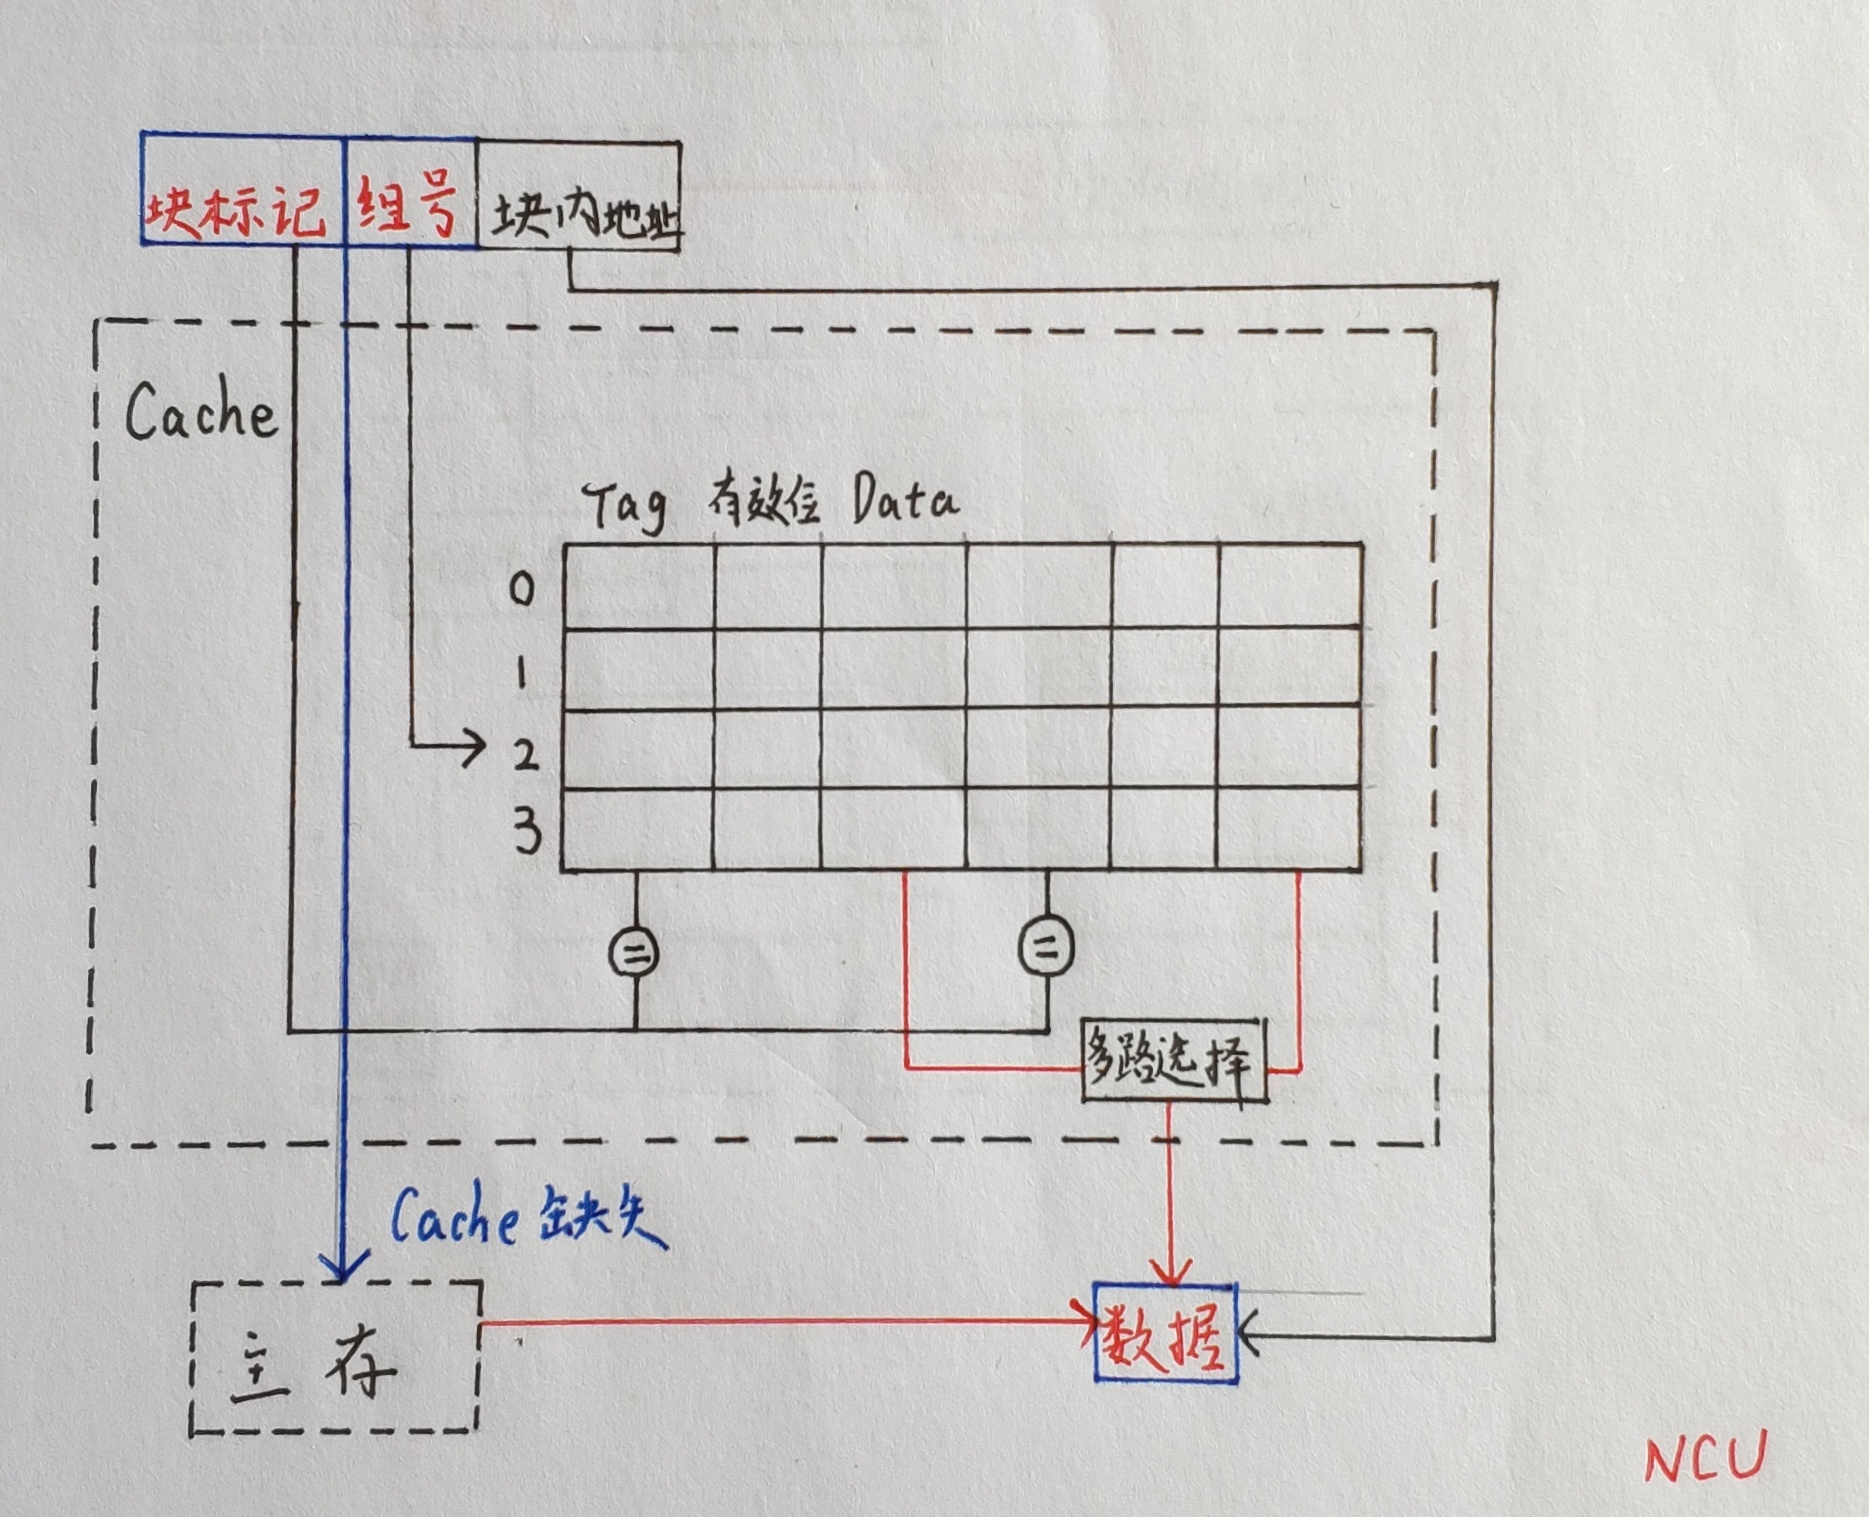 块标记 组号 块内地址
Cache
Tag 有效位 Data
0
1
2
3
= =
多路选择
Cache 缺失
主存 数据
NCU